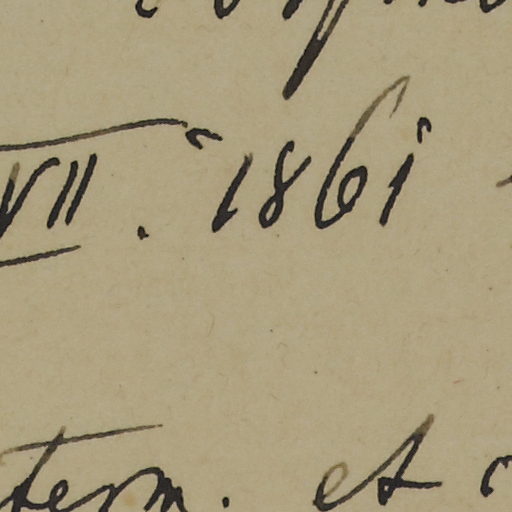 VII. 1861
term. et